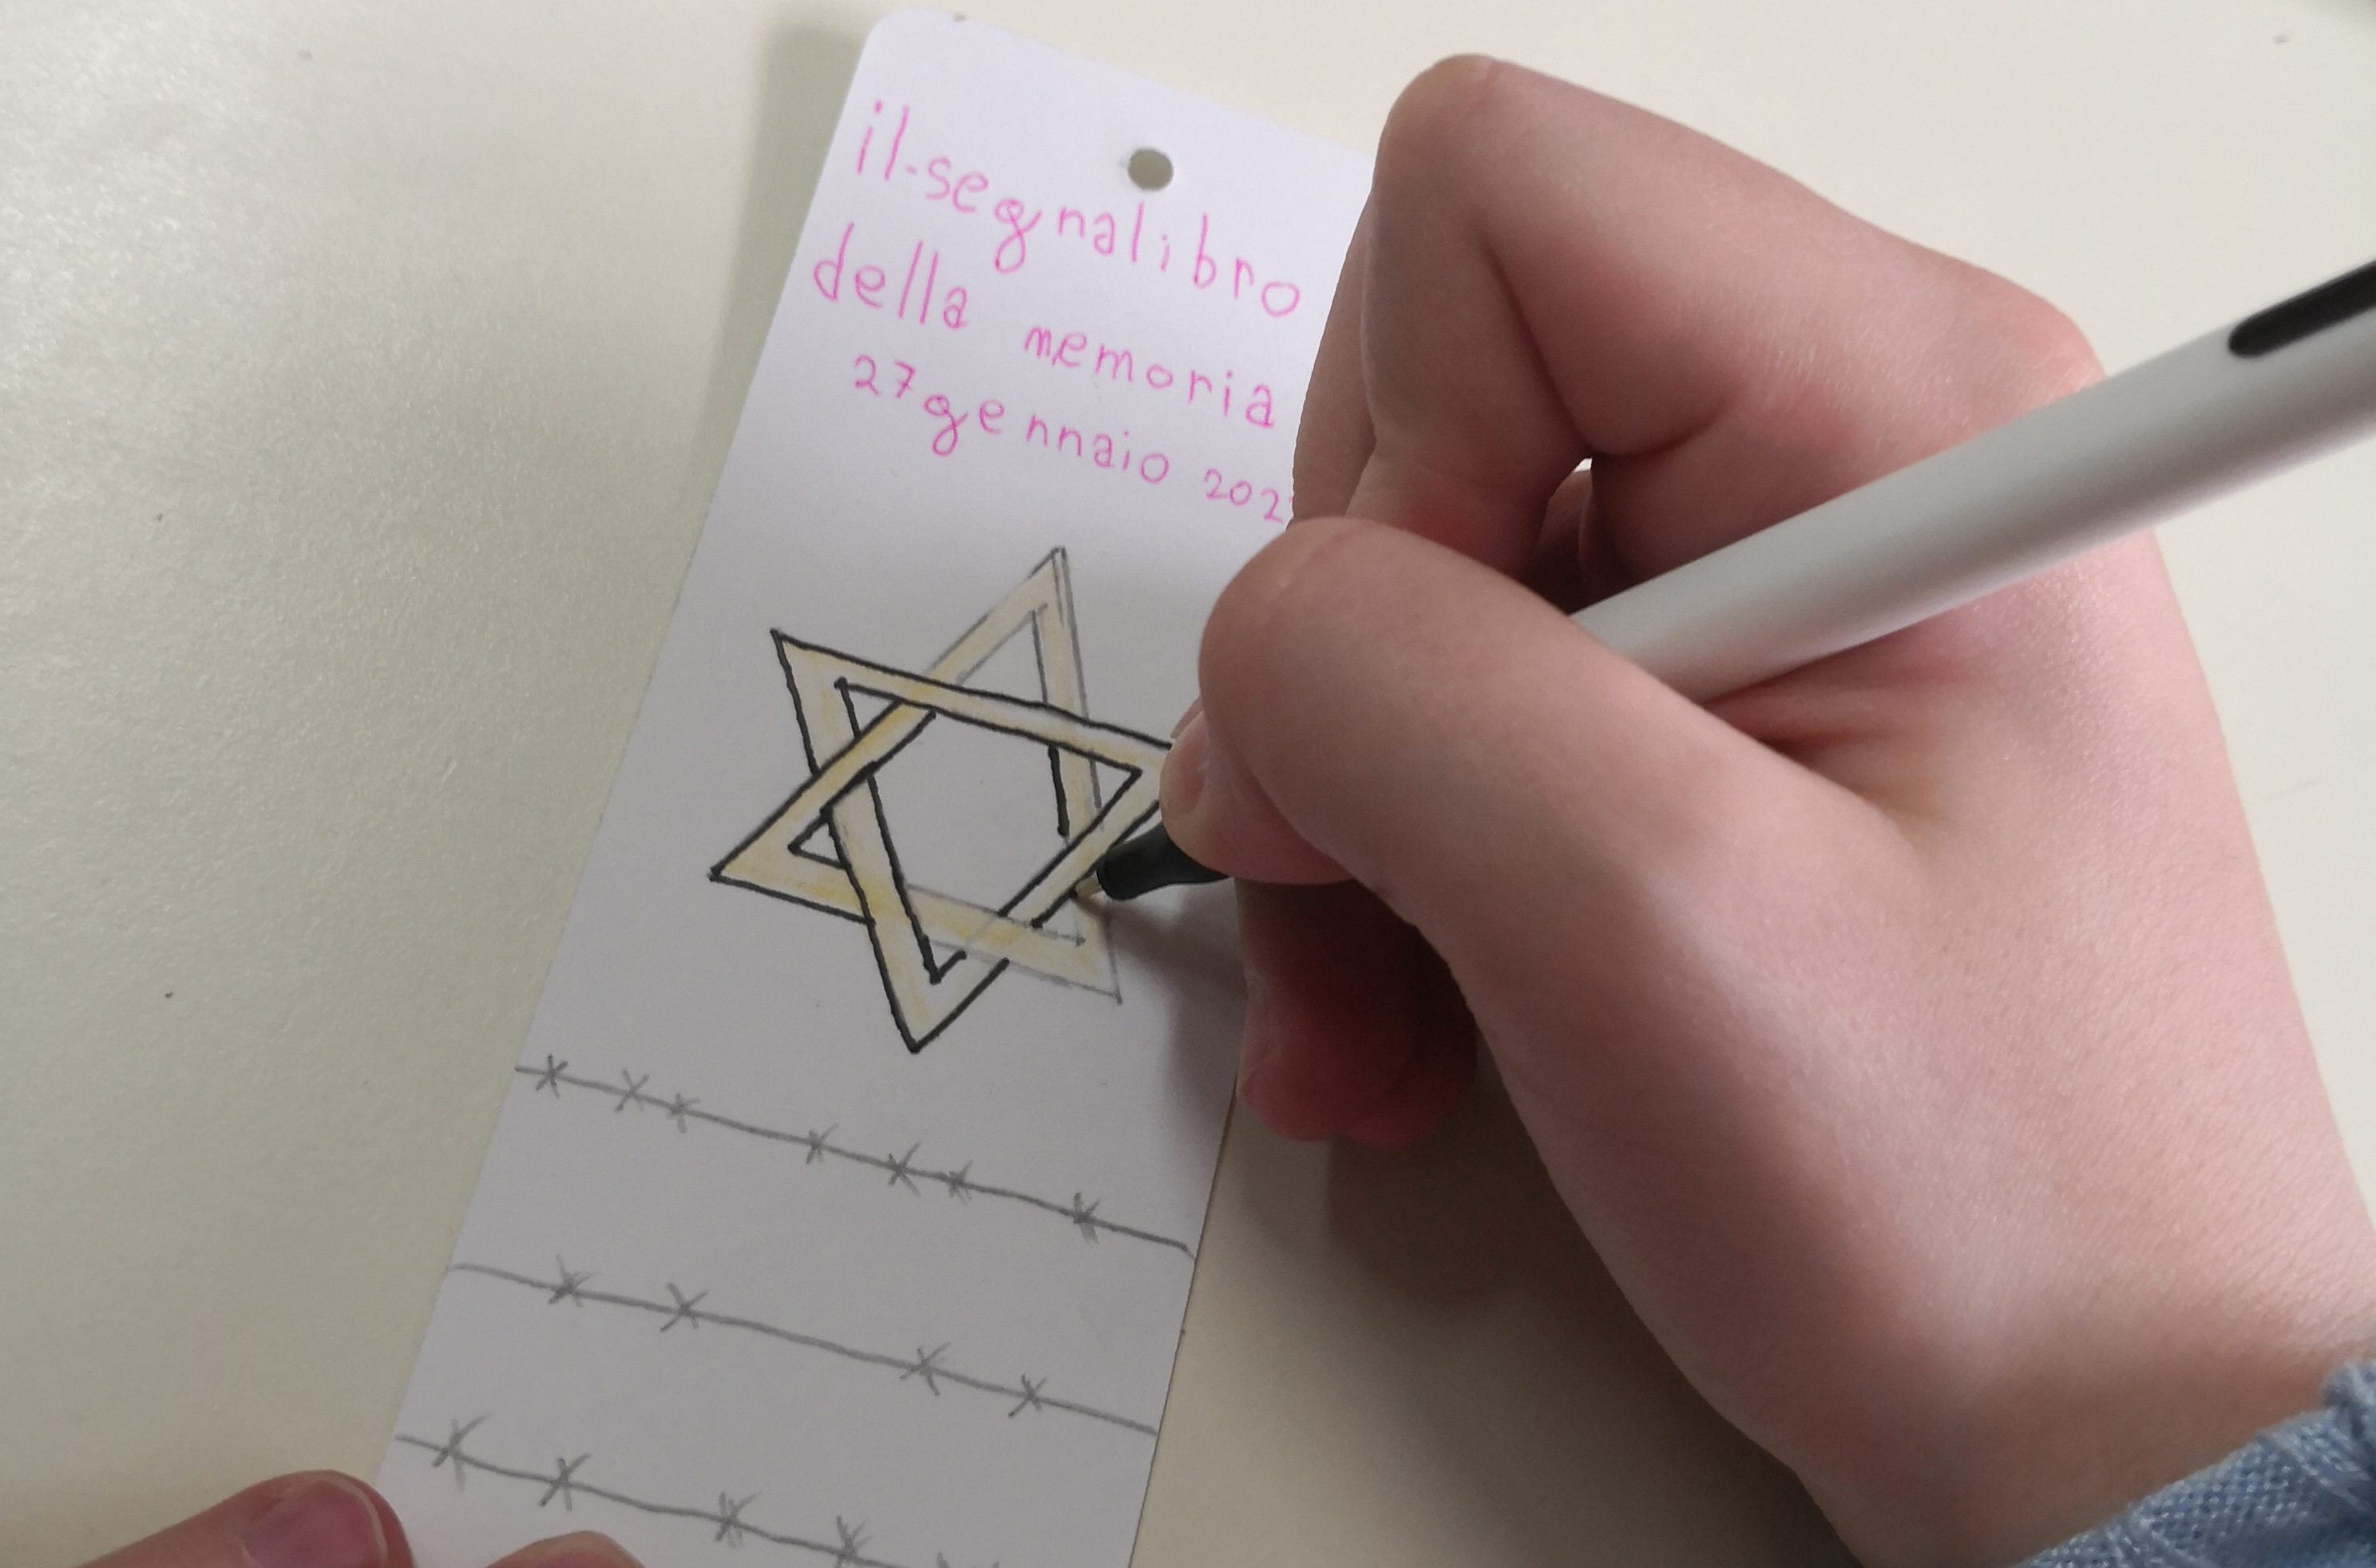 il-segnalibro
della memoria
27 gennaio